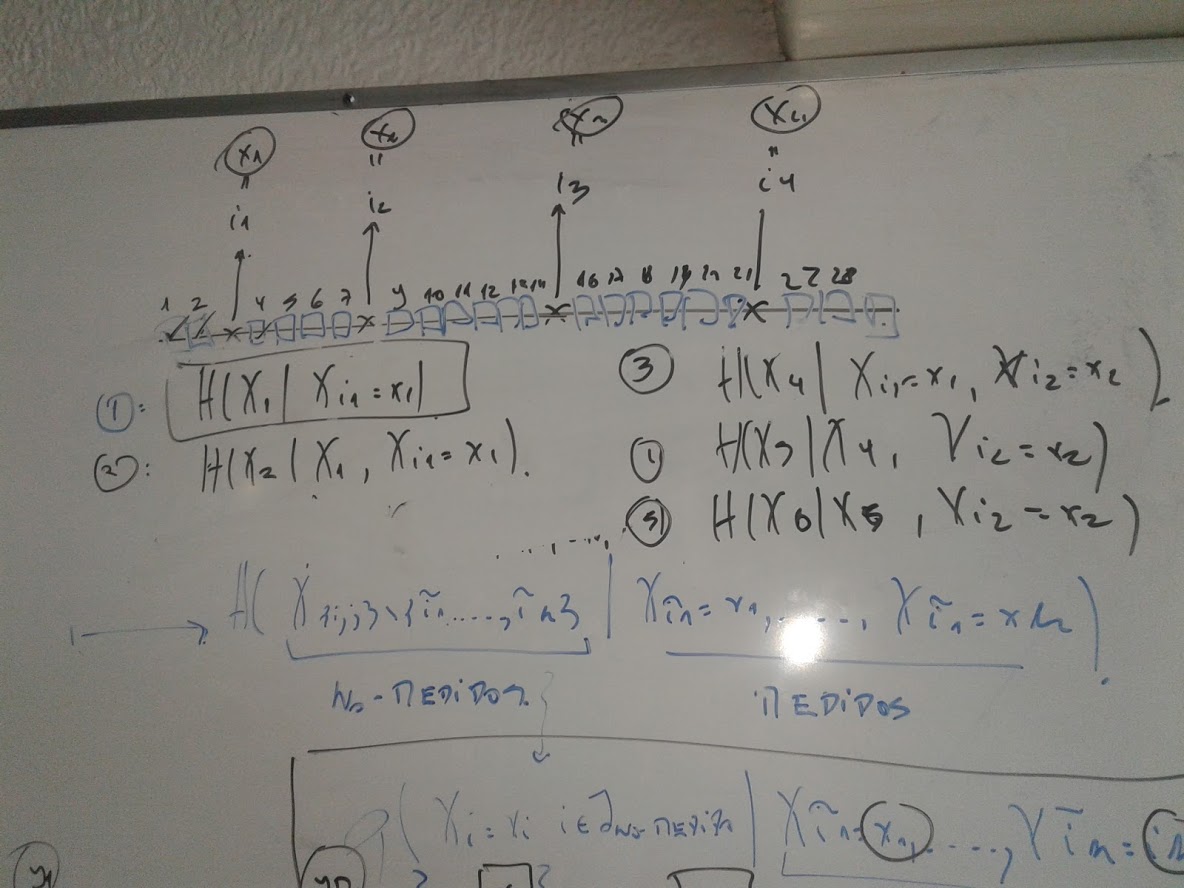 x1 x2 x4
" " " "
i1 i2 i3 i4
1 2 4 5 6 7 9 10 11 12 13 14 16 17 18 19 20 21 27 28
①: H(X1 | Xi1 = x1)
②: H(X2 | X1, Xi1 = x1).
③ H(X4 | Xi1 = x1, Xi2 = x2)
H(X5 | X4, Xi2 = x2)
⑤ H(X6 | X5, Xi2 = x2)
H( X{i,j}\{ĩ1....., ĩn} | Xĩ1 = x1, ....., Xĩn = xn ).
No-MEDIDOS MEDIDOS
( Xi = xi i∈ No-MEDIDOS | Xĩ1 = x1, ....., Xĩn =
y1 yn